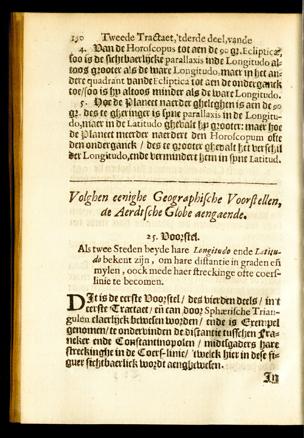 150 Tweede Tractaet, 'tderde deel, vande
4. Van de Horoscopus tot aen de 90 gr. Ecliptica,
soo is de sichtbaerlijcke parallaxis inde Longitudo al-
toos grooter als de ware Longitudo, maer in het an-
dere quadrant vande Ecliptica tot aen de onderganck
toe/ soo is hy altoos minder als de ware Longitudo.
5. Hoe de Planeet naerder gheleghen is aen de 90
gr. des te geringer is syne parallaxis in de Longitu-
do, maer in de Latitudo ghevalt hy grooter: maer hoe
de Planeet meerder naerdert den Horoscopum ofte
den onderganck / des te grooter ghevalt het verschil
der Longitudo, ende vermindert hem in syne Latitud.
Volghen eenighe Geographische Voorstellen,
de Aerdtsche Globe aengaende.
25. Voorstel.
Als twee Steden beyde hare Longitudo ende Latitu-
do bekent zijn, om hare distantie in graden eñ
mylen, oock mede haer streckinge ofte coers-
linie te becomen.
DIt is de eerste Voorstel / des vierden deels / in't
eerste Tractaet / eñ can door Sphærische Trian-
gulen claerlijck bewesen worden / ende is Exempel
genomen/ te ondervinden de distantie tusschen Fra-
neker ende Constantinopolen / midtsgaders hare
streckinghe in de Coers-linie/ 'twelck hier in dese fi-
guer sichtbaerlick wordt aenghewesen.
In